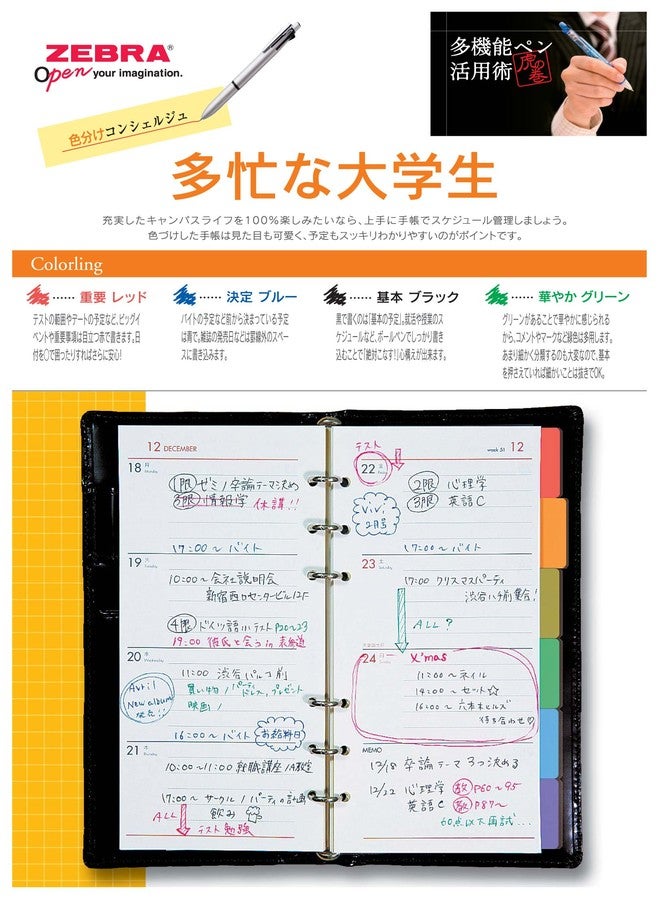 ZEBRA®
Open your imagination.
色分けコンシェルジュ
多機能ペン
活用術
虎の巻
多忙な大学生
充実したキャンパスライフを100％楽しみたいなら、上手に手帳でスケジュール管理しましょう。
色づけした手帳は見た目も可愛く、予定もスッキリわかりやすいのがポイントです。
Colorling
……重要 レッド
テストの範囲やデートの予定など、ビッグイ
ベントや重要事項は目立つ赤で書きます。日
付を〇で囲ったりすればさらに安心!
……決定 ブルー
バイトの予定など前から決まっている予定
は青で。雑誌の発売日などは罫線外のスペー
スに書き込みます。
……基本 ブラック
黒で書くのは「基本の予定」。就活や授業のス
ケジュールなど、ボールペンでしっかり書き
込むことで「絶対こなす!」心構えが出来ます。
……華やか グリーン
グリーンがあることで華やかに感じられる
から、コメントやマークなど緑色は多用します。
あまり細かく分類するのも大変なので、基本
を押さえていれば細かいことは抜きでOK。
12 DECEMBER
18 月
Monday
1限 ゼミ / 卒論テーマ決め
3限 情報学 休講!!
17:00〜 バイト
19 火
Tuesday
10:00〜 会社説明会
新宿西口センタービル12F
4限 ドイツ語小テスト P20〜23
19:00 彼氏と会う in 表参道
20 水
Wednesday
11:00 渋谷パルコ前
買い物 / パーティドレス、プレゼント
映画 /
Avril
New album
発売!!
16:00〜 バイト お給料日
21 木
Thursday
10:00〜11:00 就職講座 / A教室
17:00〜 サークル / パーティの計画
飲み
ALL
テスト勉強
week 51 12
テスト
22 金
Friday
2限 心理学
3限 英語C
ViVi
2月号
17:00〜 バイト
23 土
Saturday
17:00 クリスマスパーティ
渋谷ハチ前集合!
ALL ?
24 日
X'mas
11:00〜 ネイル
14:00〜 セット☆
16:00〜 六本木ヒルズ
待ち合わせ♡
MEMO
12/18 卒論テーマ 3つ決める
12/22 心理学 教 P60〜95
英語C 教 P87〜
60点以下再試…